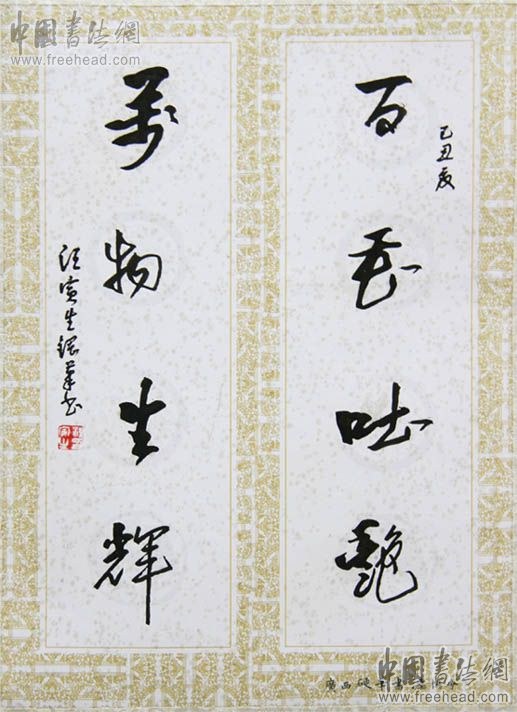 中國書法網
www.freehead.com
己丑夏
百花吐艷
萬物生輝
寅生筆书
廣西硬
中國書法網
www.freehead.com